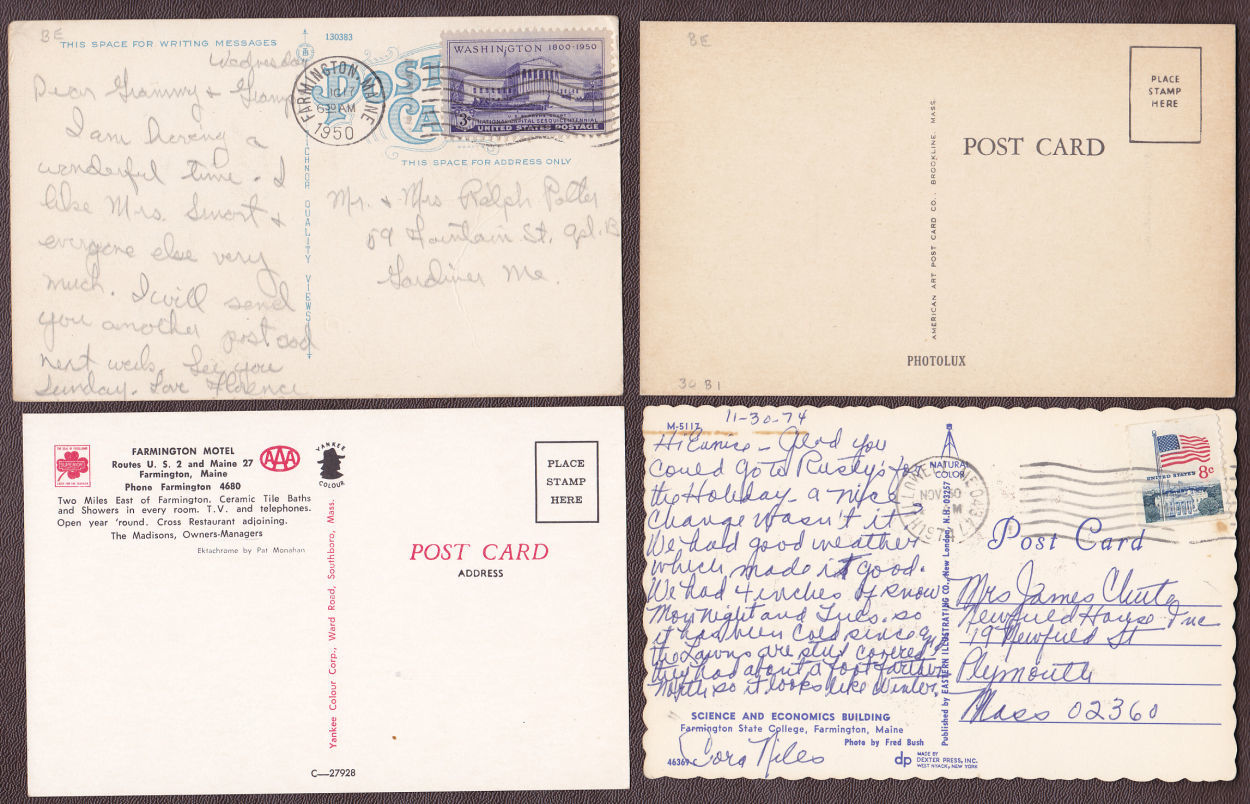 BE
THIS SPACE FOR WRITING MESSAGES
130383
POST
CA
Wednesday
Dear Grammy &
I am having a
wonderful time. I
like Mrs. Smart &
everyone else very
much. I will send
you another post card
next week. See you
Sunday. Love Florence
FARMINGTON, MAINE
17
6 30 AM
1950
WASHINGTON 1800-1950
3¢
U.S. SUPREME COURT
NATIONAL CAPITAL SESQUICENTENNIAL
UNITED STATES POSTAGE
TICHNOR QUALITY VIEWS
THIS SPACE FOR ADDRESS ONLY
Mr. & Mrs Ralph Potter
59 Fountain St.
Gardiner Me.
BE
PLACE
STAMP
HERE
POST CARD
AMERICAN ART POST CARD CO., BROOKLINE, MASS.
PHOTOLUX
30 B1
SUPERIOR
FARMINGTON MOTEL
Routes U. S. 2 and Maine 27
Farmington, Maine
Phone Farmington 4680
AAA
YANKEE
COLOUR
Two Miles East of Farmington. Ceramic Tile Baths
and Showers in every room. T.V. and telephones.
Open year 'round. Cross Restaurant adjoining.
The Madisons, Owners-Managers
Ektachrome by Pat Monahan
Yankee Colour Corp., Ward Road, Southboro, Mass.
PLACE
STAMP
HERE
POST CARD
ADDRESS
C—27928
M-5117
11-30-74
Hi Eunice - Glad you
could go to Rusty's for
the Holiday - a nice
change wasn't it?
We had good weather
which made it good.
We had 4 inches of snow
Mon night and Tues. so
it has been cold since
the Lawns are still covered
they had about a foot farther
North so it looks like Winter.
NATURAL
COLOR
NOV 30
M
UNITED STATES
8¢
Published by EASTERN ILLUSTRATING CO., New London, N.H. 03257
Post Card
Mrs James Chute
Newfield House Inc
19 Newfield St
Plymouth
Mass 02360
SCIENCE AND ECONOMICS BUILDING
Farmington State College, Farmington, Maine
Photo by Fred Bush
46369
Cora Niles
dp
MADE BY
DEXTER PRESS, INC.
WEST NYACK, NEW YORK